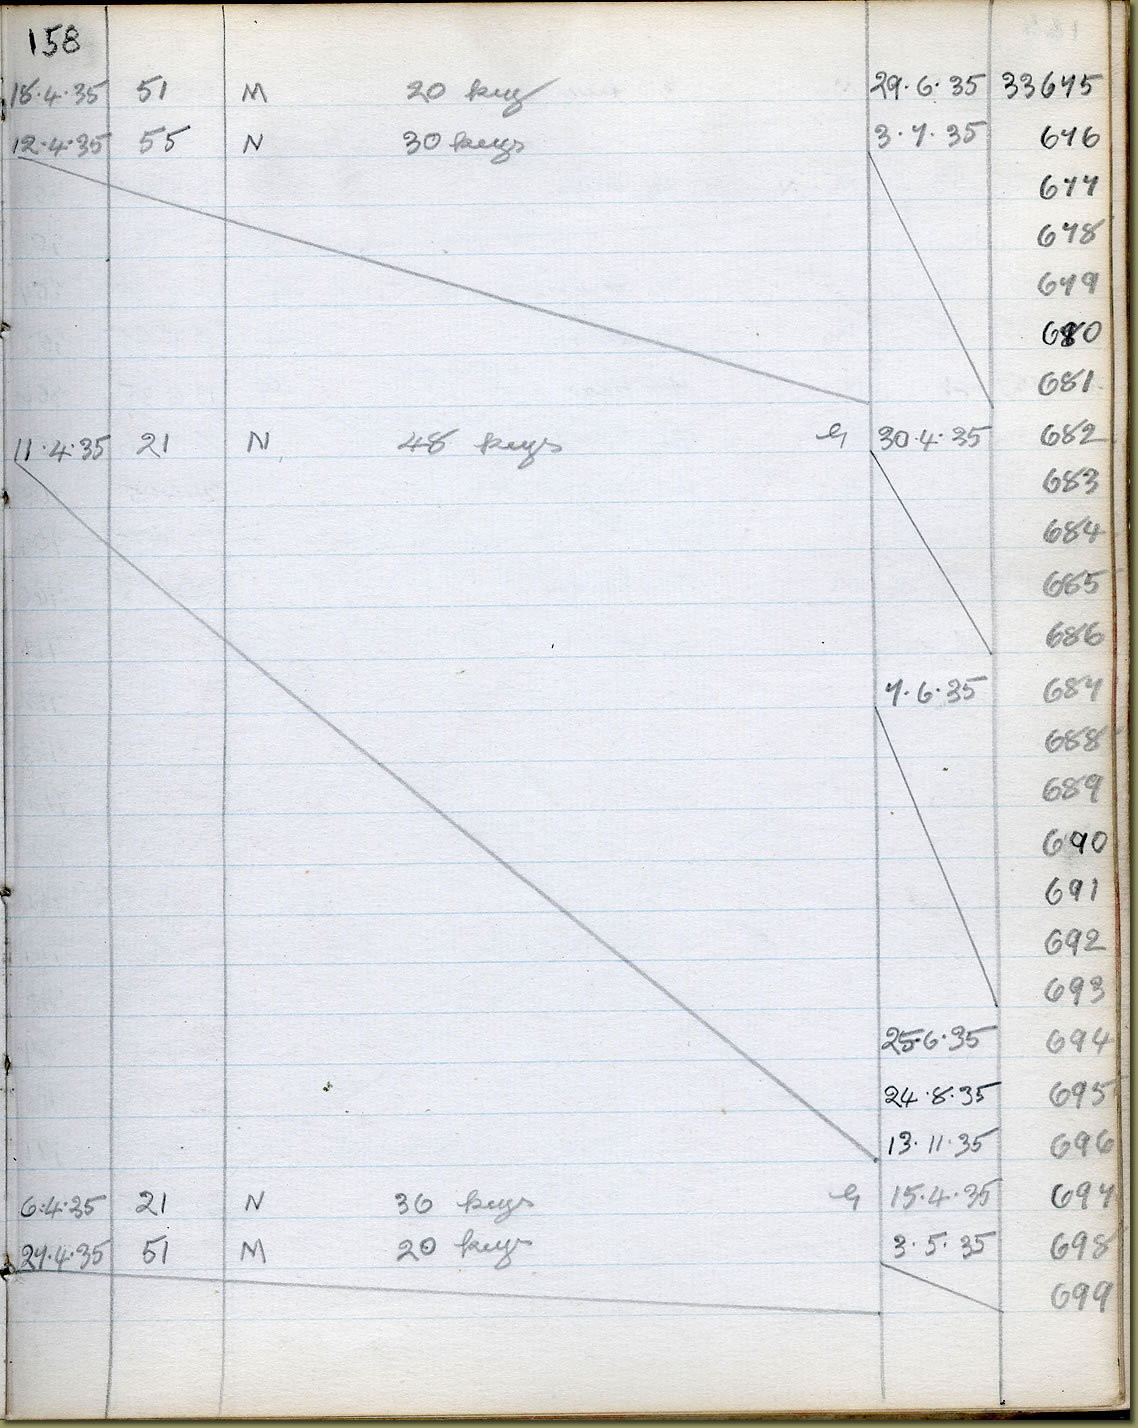 158
18·4·35 51 M 20 keys 29·6·35 33675
12·4·35 55 N 30 keys 3·7·35 676
677
678
679
680
681
11·4·35 21 N 48 keys G 30·4·35 682
683
684
685
686
7·6·35 687
688
689
690
691
692
693
25·6·35 694
24·8·35 695
13·11·35 696
6·4·35 21 N 36 keys G 15·4·35 697
27·4·35 51 M 20 keys 3·5·35 698
699